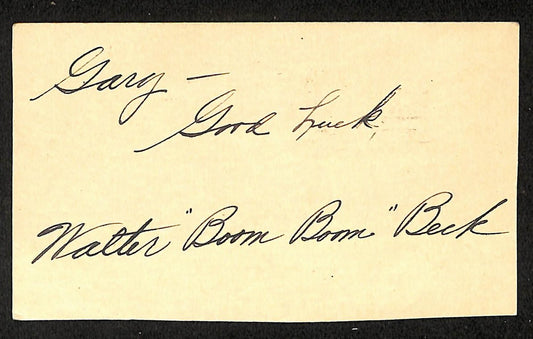 Gary –
Good Luck,
Walter "Boom Boom" Beck